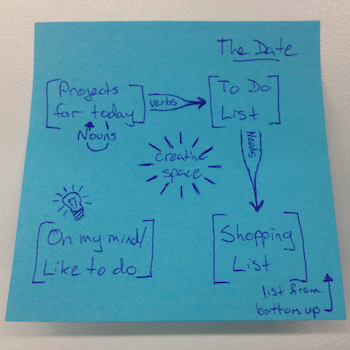 The Date
Projects
for today
Nouns
verbs
To Do
List
Needs
creative
space
On my mind/
Like to do
Shopping
List
list from
bottom up